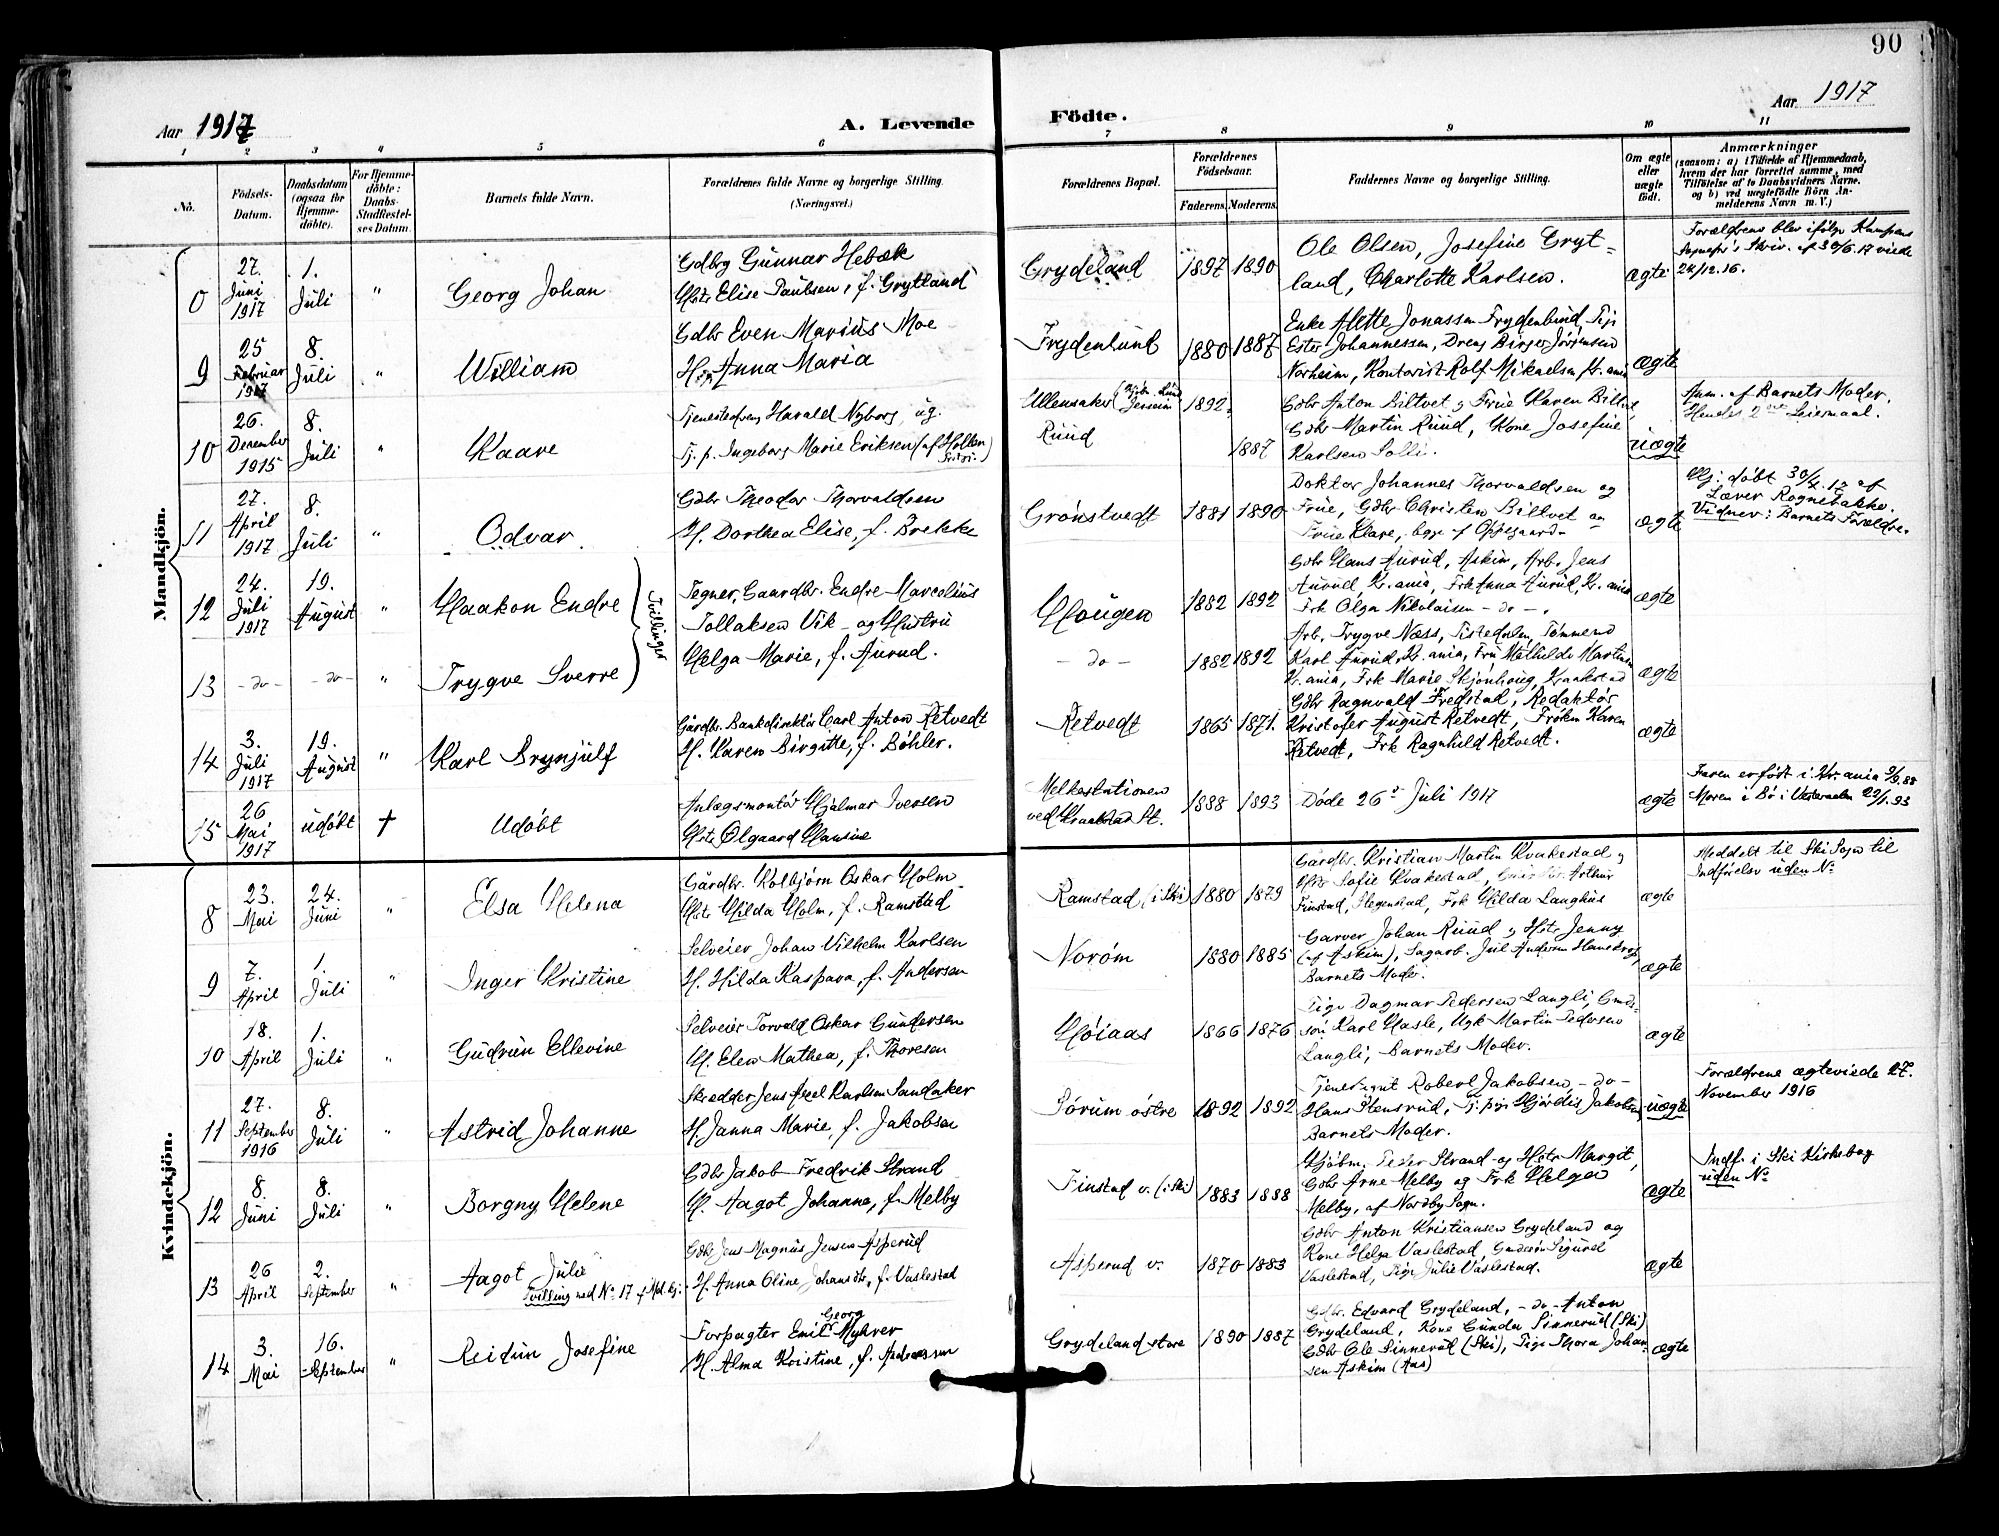 90
Aar 1917
A. Levende
Födte.
Aar 1917
1 2 3 4 5 6 7 8 9 10 11
No.
Födsels-
Datum.
Daabsdatum
(ogsaa for
Hjemme-
döbte).
For Hjemme-
döbte:
Daabs-
Stadfæstel-
ses Datum.
Barnets fulde Navn.
Forældrenes fulde Navne og borgerlige Stilling.
(Næringsvei.)
Forældrenes Bopæl.
Forældrenes
Födselsaar.
Faderens. Moderens.
Faddernes Navne og borgerlige Stilling.
Om ægte
eller
uægte
födt.
Anmærkninger
(saasom: a) i Tilfælde af Hjemmedaab,
hvem der har forrettet samme, med
Tilföielse af to Daabsvidners Navne.
og b) ved uægtefödte Börn An-
melderens Navn m. V.)
Mandkjön.
27. Juni 1917
1. Juli
"
Georg Johan
Gdbrg Gunnar Hebæk
Hstr Elise Paulsen, f. Grytland
Grydeland
1897 1890
Ole Olsen, Josefine Gryt-
land, Charlotte Karlsen.
ægte
Forældrene blev ifølge Kampens
Sognepr's Skriv. af 30/6 17 viede
24/12.16.
9
25 Februar 1917
8. Juli
"
William
Gdbr Even Marius Moe
H Anna Maria
Frydenlund
1880 1887
Enke Alette Jonassen Frydenlund, Pige
Ester Johannessen, Dreng Birger Jørgensen
Norheim, Kontorist Rolf Mikaelsen Kr.ania
ægte
10
26. December 1915
8. Juli
"
Kaare
Tjenestedreng Harald Nyborg, ug.
Tj. p. Ingeborg Marie Eriksen (af Holken
Ullensaker
Ruud
1892.
1887
Gdbr Anton Biltvet og Frue Karen Biltvet,
Gdbr Martin Ruud, Kone Josefine
Karlsen Solli.
uægte
Anm. af Barnets Moder.
Hendes 2det Leiermaal.
11
27. April 1917
8. Juli
"
Odvar
Gdbr Theodor Thorvaldsen
H. Dorthea Elise, f. Brekke
Grønstvedt
1881 1890
Doktor Johannes Thorvaldsen og
Frue, Gdbr Christen Biltvet og
Frue Klare, begge f Oppegaard
ægte
Hj: døbt 30/4.17 af
Lærer Rognebakke.
Vidner: Barnets Forældre.
12
24. Juli 1917
19. August
"
Haakon Endre
Tvillinger
Tegner, Gaardbr. Endre Marcelius
Tollaksen Vik - og Hustru
Helga Marie, f. Aurud.
Hougen
1882 1892
Gdbr Hans Aurud, Askim, Arb. Jens
Aurud, Kr.ania, Frk Anna Aurud, Kr.ania
Frk Olga Nikolaisen - do -.
ægte
13
- do -
- do -
"
Trygve Sverre
- do -
1882 1892
Arb. Trygve Næss, Tistedalen, Tømmermd
Karl Aurud, Kr.ania, Fru Mathilde Martinsen
Kr.ania, Frk Marie Skjønhoug, Kraakstad
ægte
14
3. Juli 1917
19. August
"
Karl Brynjulf
Gårdbr. Bankdirektør Carl Anton Retvedt
H. Karen Birgitte, f. Bøhler.
Retvedt
1865 1871.
Gdbr Ragnvald Fredstad, Redaktør
Kristofer August Retvedt, Frøken Karen
Retvedt, Frk Ragnhild Retvedt.
ægte
15
26 Mai 1917
udøbt
†
Udøbt
Anlægsmontør Hjalmar Iversen
Hstr Olgaard Hansine
Melkestationen
ved Kraakstad St.
1888 1893
Døde 26de Juli 1917
ægte
Faren er født i Kr.ania 9/9.88
Moren i Bø i Vesteraalen 22/1.93
Kvindekjön.
8
23. Mai
24. Juni
"
Elsa Helena
Gårdbr. Kolbjørn Oskar Holm
Hstr Hilda Holm, f. Ramstad
Ramstad, (i Ski)
1880 1879
Gårdbr. Kristian Martin Kvakestad og
Hstr Sofie Kvakestad, Arthur
Finstad, Hegenstad, Frk Hilda Langhus
ægte
Meddelt til Ski Sogn til
Indførelse uden No
9
7. April
1. Juli
"
Inger Kristine
Selveier Johan Vilhelm Karlsen
H. Hilda Kaspara, f. Andersen
Norøm
1880 1885
Garver Johan Ruud og Hstr Jenny
(af Askim), Sagarb. Jul Andersen
Barnets Moder.
ægte
10
18. April
1. Juli
"
Gudrun Ellevine
Selveier Torvald Oskar Gundersen
H. Elen Mathea, f. Thoresen
Høiaas
1866 1876
Pige Dagmar Pedersen Langli, Gmds-
søn Karl Hasle, Ugk Martin Pedersen
Langli, Barnets Moder.
ægte
11
27. September 1916
8. Juli
"
Astrid Johanne
Skredder Jens Axel Karlsen Sandaker
H. Janna Marie, f. Jakobsen
Sørum østre
1892 1892
Tjenestgut Robert Jakobsen, - do -
Hans Stensrud, Tj. pige Hjørdis Jakobsen,
Barnets Moder.
uægte
Forældrene ægteviede 27.
November 1916
12
8. Juni
8. Juli
"
Borgny Helene
Gdbr Jakob Fredrik Strand
H. Aagot Johanne, f. Melby
Finstad v. (i Ski)
1883 1888
Kjøbm. Peder Strand og Hstr Margit,
Gdbr Arne Melby og Frk Helga
Melby, af Nordby Sogn.
ægte
Indf. i Ski Kirkebog
uden No
13
26 April
2. September
"
Aagot Julie
Tvilling med No 17 f Md.kj.
Gdbr Jens Magnus Jensen Asperud
H. Anna Oline Johansdtr, f. Vaslestad
Asperud v.
1870 1883
Gdbr Anton Kristiansen Grydeland og
Kone Helga Vaslestad, Gmdssøn Sigurd
Vaslestad, Pige Julie Vaslestad.
ægte
14
3. Mai
16. September
"
Reidun Josefine
Forpagter Emil Georg Myhrer
H. Alma Kristine, f. Andreassen
Grydeland store
1890 1887
Gdbr. Edvard Grydeland, - do - Anton
Grydeland, Kone Gunda Sinnerud (Ski)
Gdbr Ole Sinnerud (Ski), Pige Thora Johan-
sen Askim (Aas)
ægte